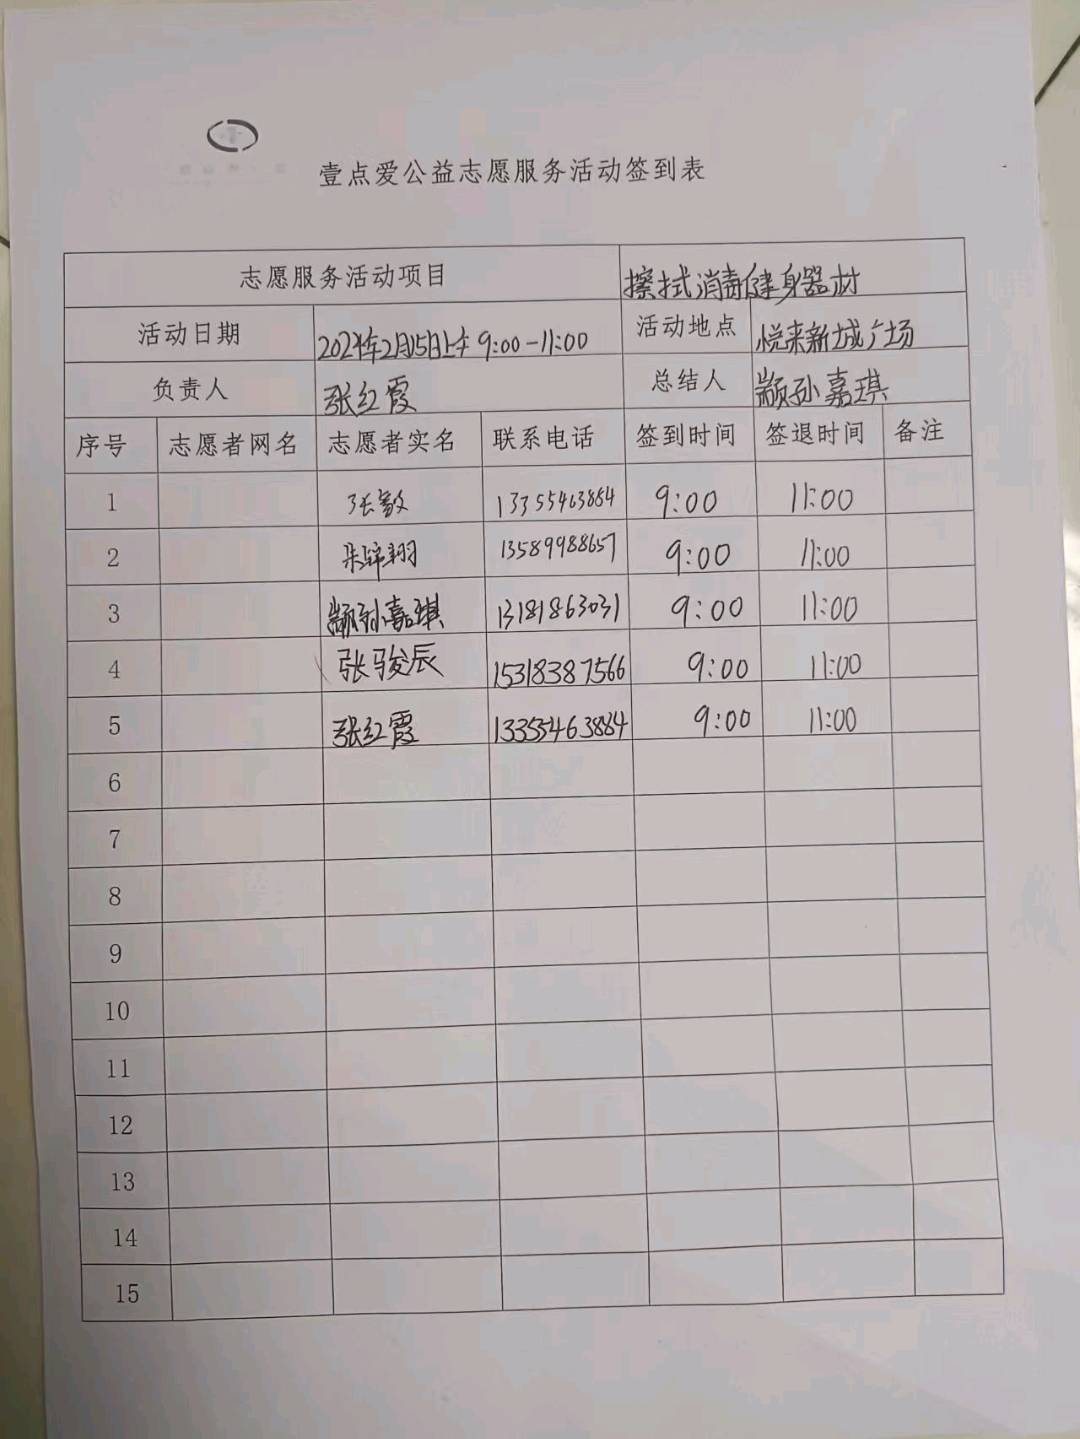 壹点爱公益志愿服务活动签到表
志愿服务活动项目 擦拭消毒健身器材
活动日期 2024年2月15日上午 9:00-11:00 活动地点 悦来新城广场
负责人 张红霞 总结人 颛孙嘉琪
序号 志愿者网名 志愿者实名 联系电话 签到时间 签退时间 备注
1 张敏 13355463884 9:00 11:00
2 朱锦翔 13589988657 9:00 11:00
3 颛孙嘉琪 13181863031 9:00 11:00
4 张骏辰 15318387566 9:00 11:00
5 张红霞 13355463884 9:00 11:00
6
7
8
9
10
11
12
13
14
15